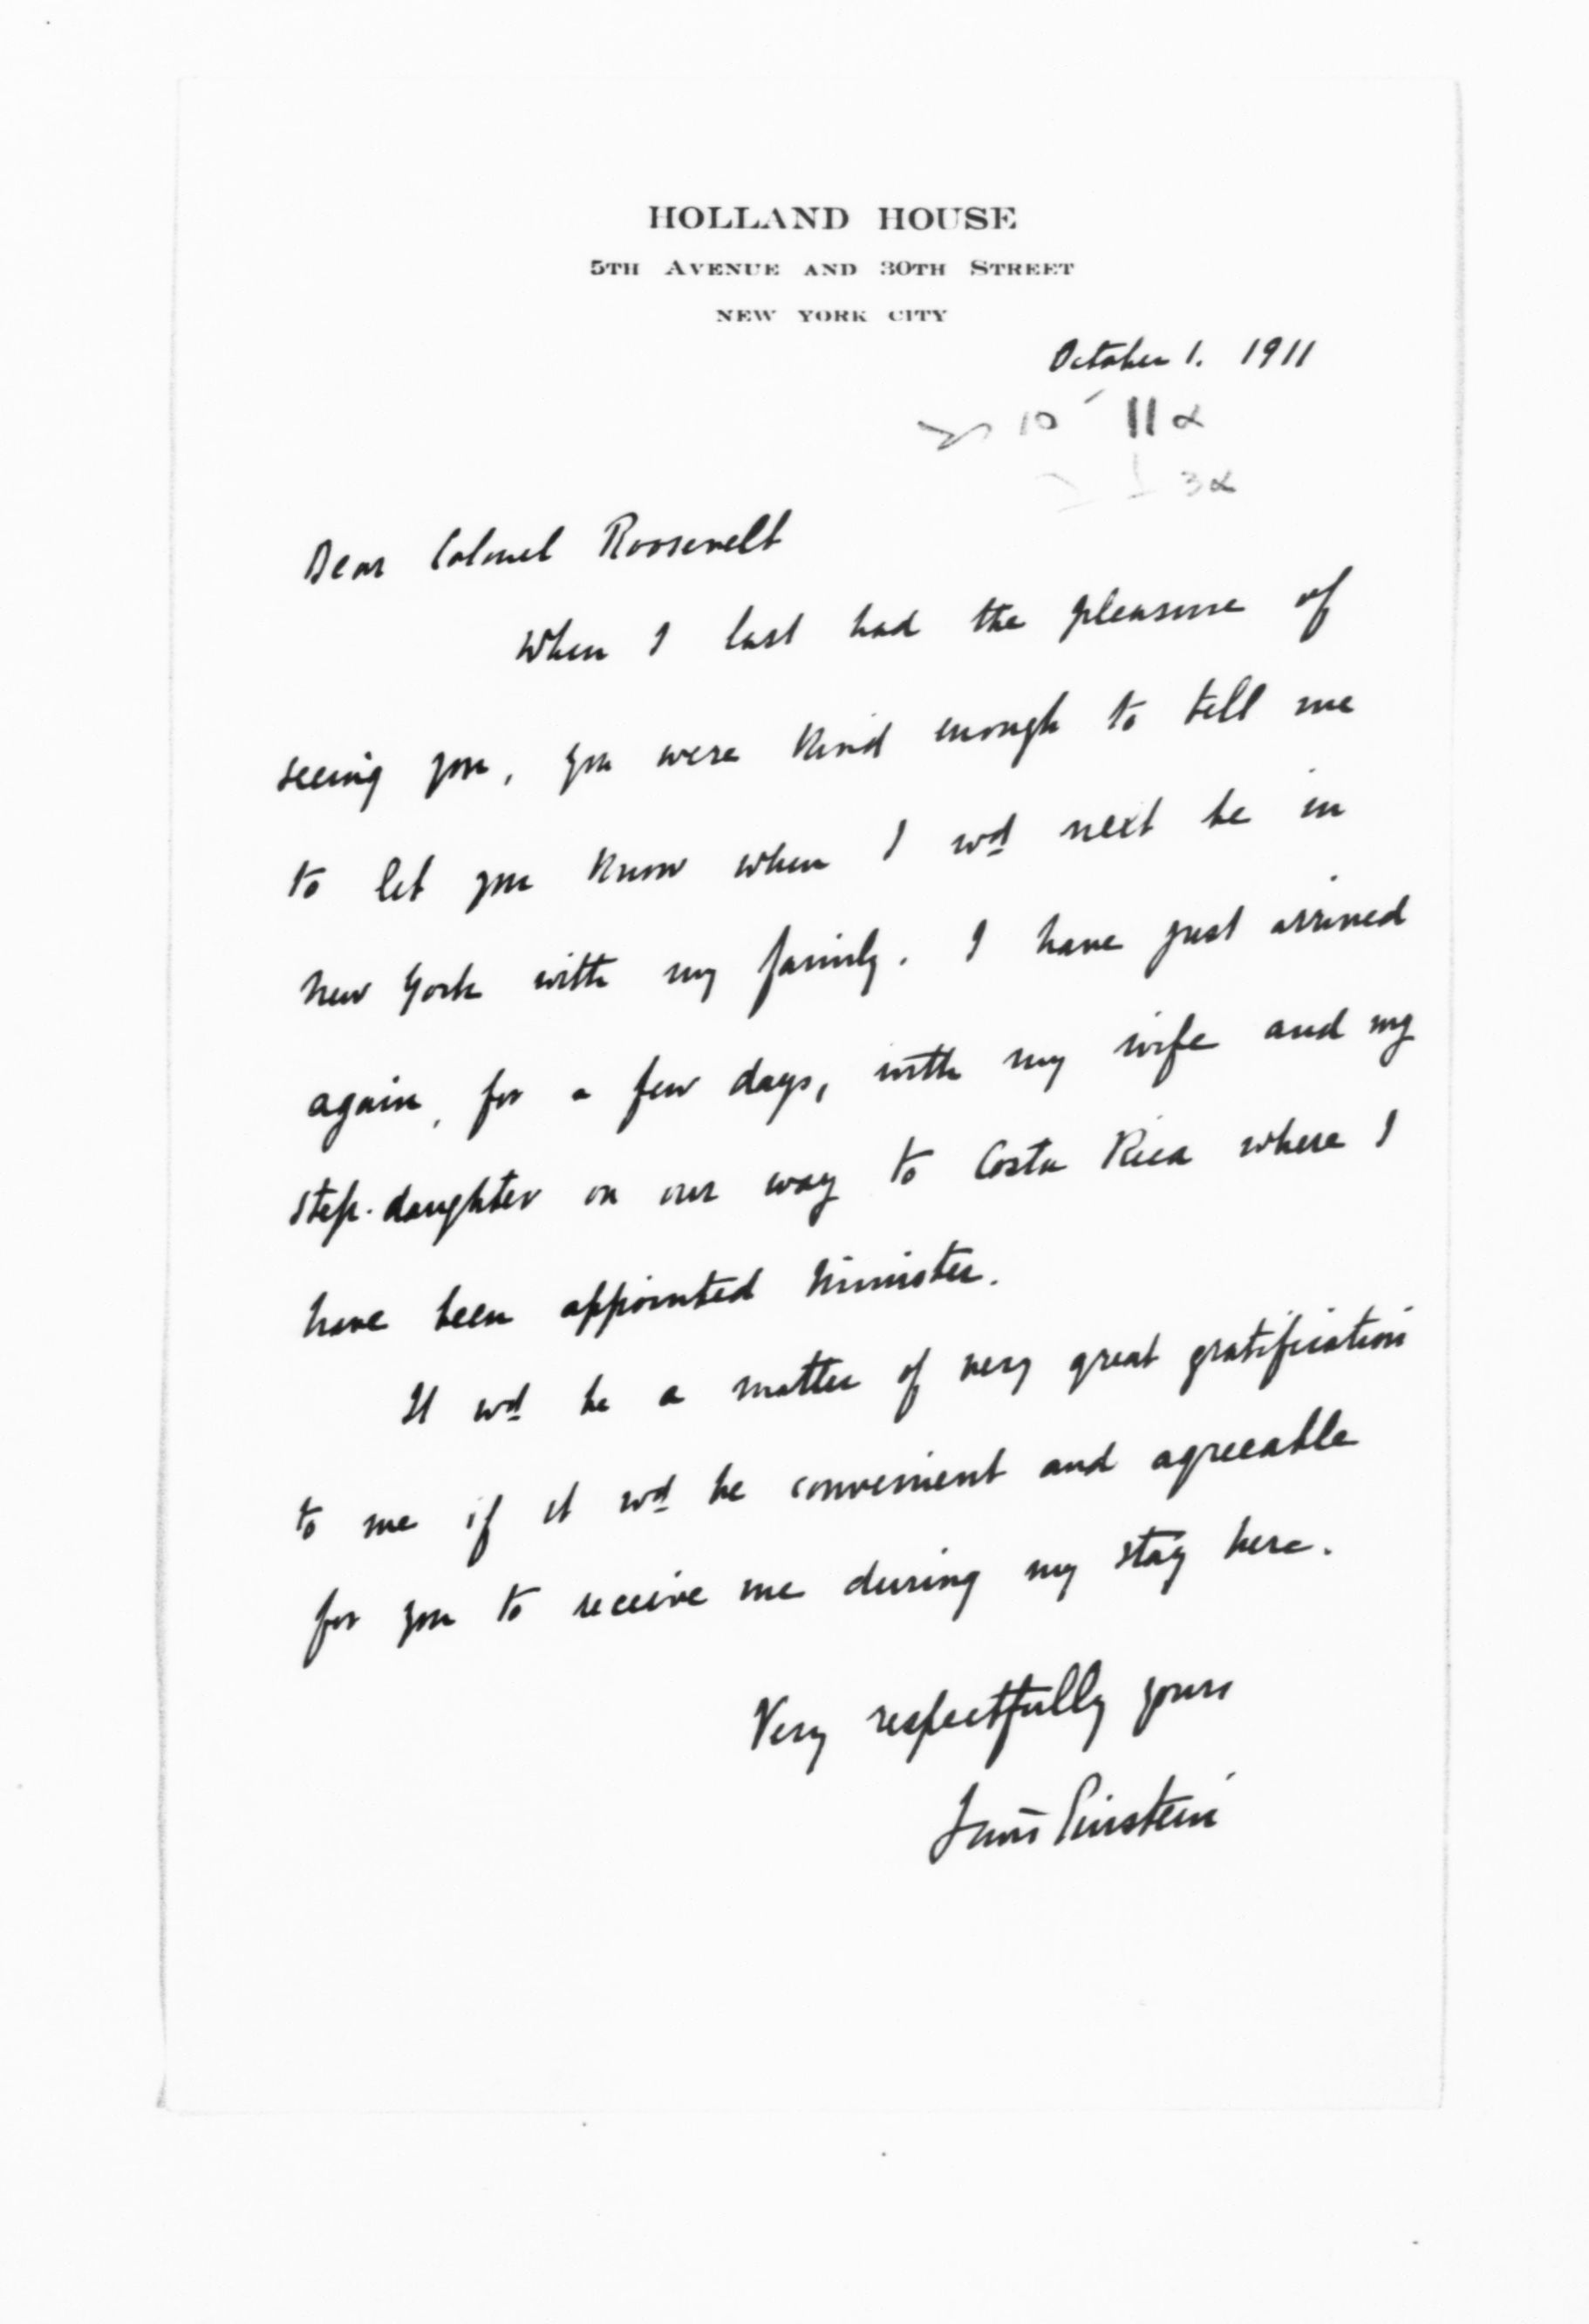 HOLLAND HOUSE
5TH AVENUE AND 30TH STREET
NEW YORK CITY
October 1. 1911
10 11
3
Dear Colonel Roosevelt
When I last had the pleasure of
seeing you, you were kind enough to tell me
to let you know when I wd next be in
New York with my family. I have just arrived
again, for a few days, with my wife and my
step-daughter on our way to Costa Rica where I
have been appointed Minister.
It wd be a matter of very great gratification
to me if it wd be convenient and agreeable
for you to receive me during my stay here.
Very respectfully yours
Lewis Einstein